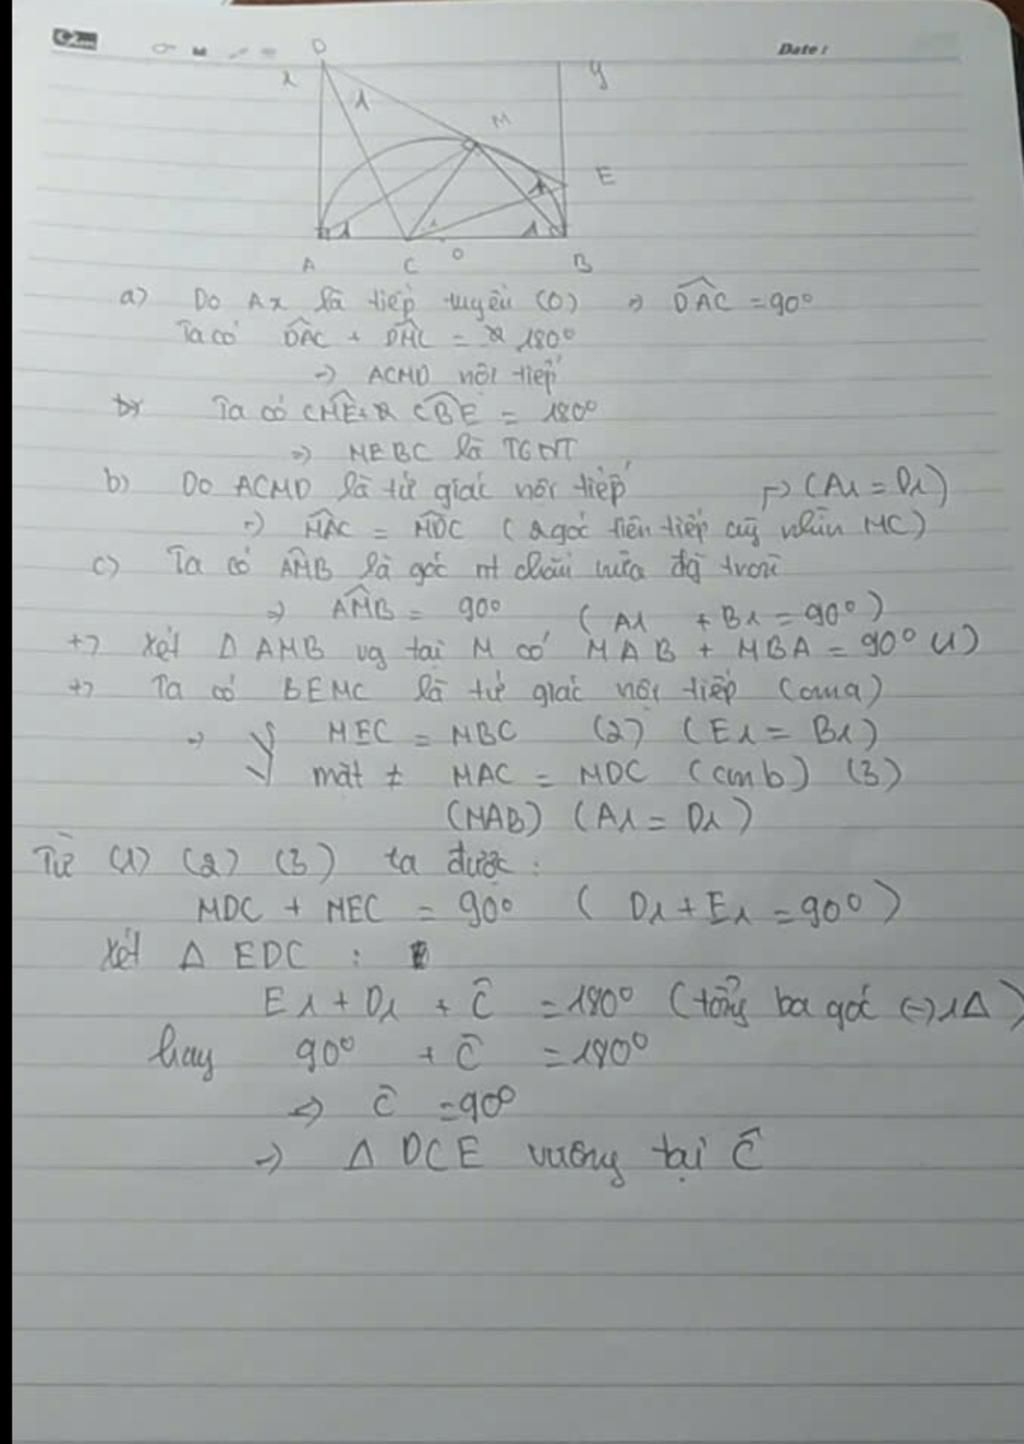 Date:
D
x
1
y
M
E
1
1
1
1
A
C
O
B
a) Do Ax là tiếp tuyến (O) => DAC = 90°
Ta có DAC + DMC = 180°
=> ACMD nội tiếp
Ta có CME + CBE = 180°
=> MEBC là TGNT
b) Do ACMD là tứ giác nội tiếp => (A1 = D1)
=> MAC = MDC (2 góc liên tiếp cùg nhìn MC)
c) Ta có AMB là góc nt chắn nửa đg tròn
=> AMB = 90° (A1 + B1 = 90°)
+> Xét Δ AMB vg tại M có MAB + MBA = 90° (1)
+> Ta có BEMC là tứ giác nội tiếp (cma)
=> MEC = MBC (2) (E1 = B1)
mặt ≠ MAC = MDC (cm b) (3)
(MAB) (A1 = D1)
Từ (1) (2) (3) ta được:
MDC + MEC = 90° (D1 + E1 = 90°)
Xét Δ EDC :
E1 + D1 + C = 180° (tổng ba góc 1Δ)
hay 90° + C = 180°
=> C = 90°
=> Δ DCE vuông tại C